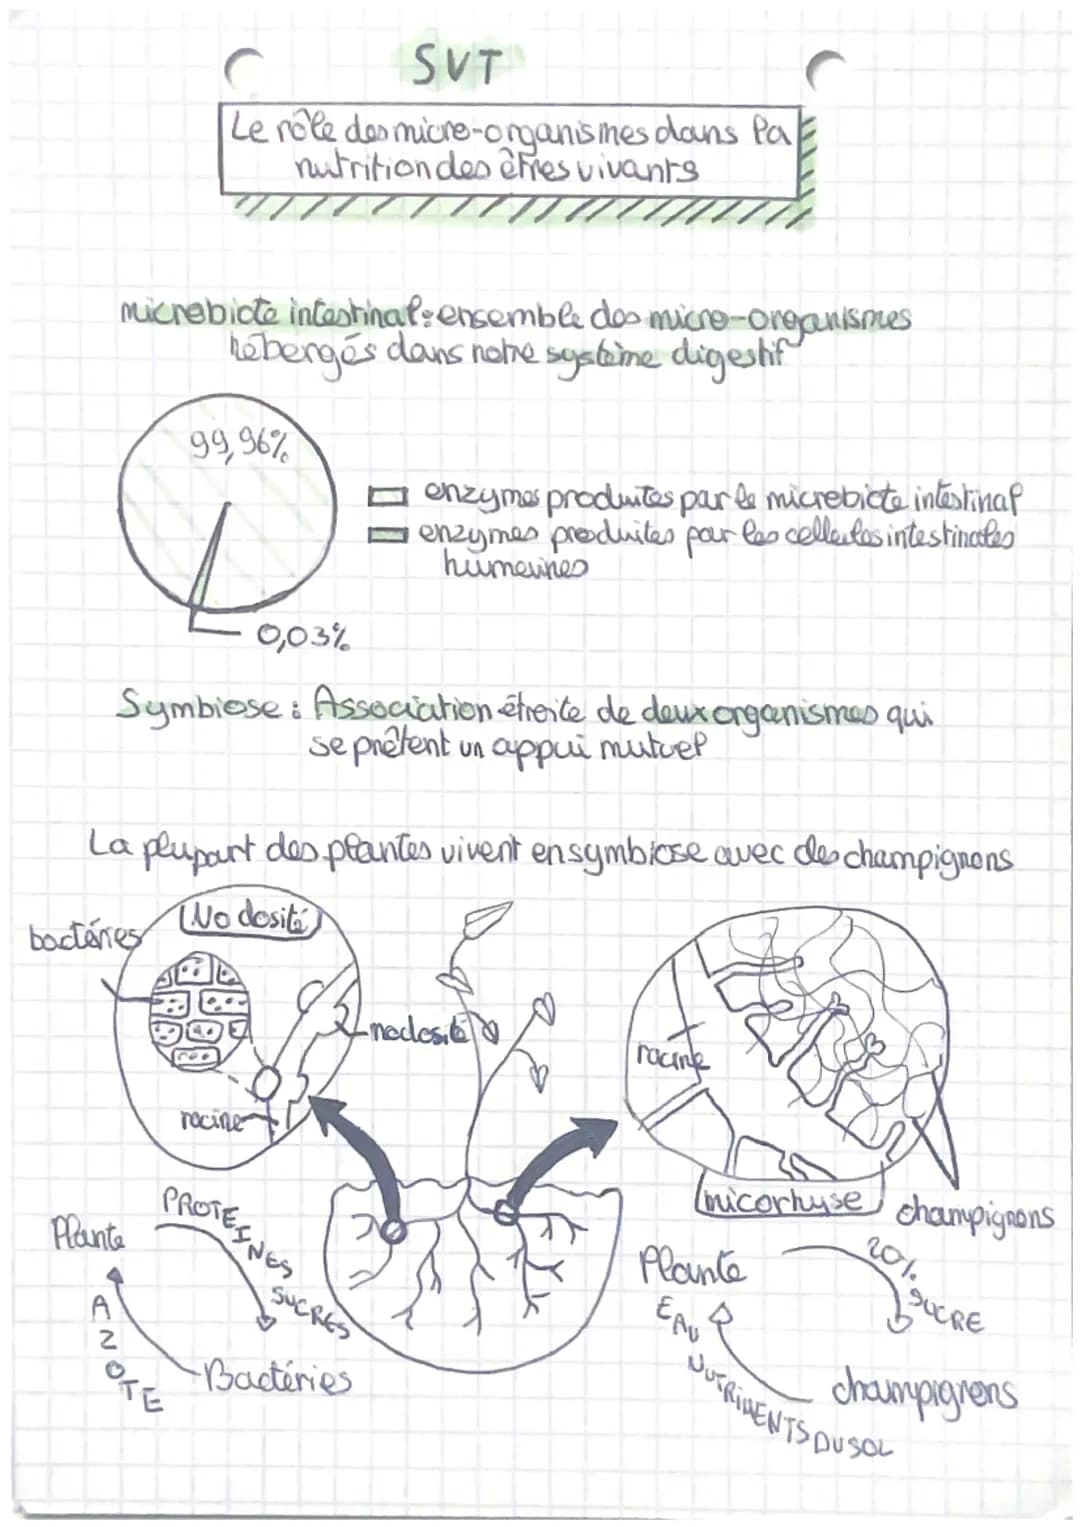 SVT
Le rôle des micro-organismes dans la
nutrition des êtres vivants
microbiote intestinal: ensemble des micro-organismes
hébergés dans notre système digestif
99,96%
enzymes produites par le microbiote intestinal
enzymes produites par les cellules intestinales
humaines
0,03%
Symbiose : Association étroite de deux organismes qui
se prêtent un appui mutuel
La plupart des plantes vivent en symbiose avec des champignons
Nodosité
bactéries
nodosité
racine
racine
micorhyse
champignons
Plante
PROTEINES
SUCRES
AZOTE
Bactéries
Plante
20% SUCRE
EAU
NUTRIMENTS DU SOL
champignons